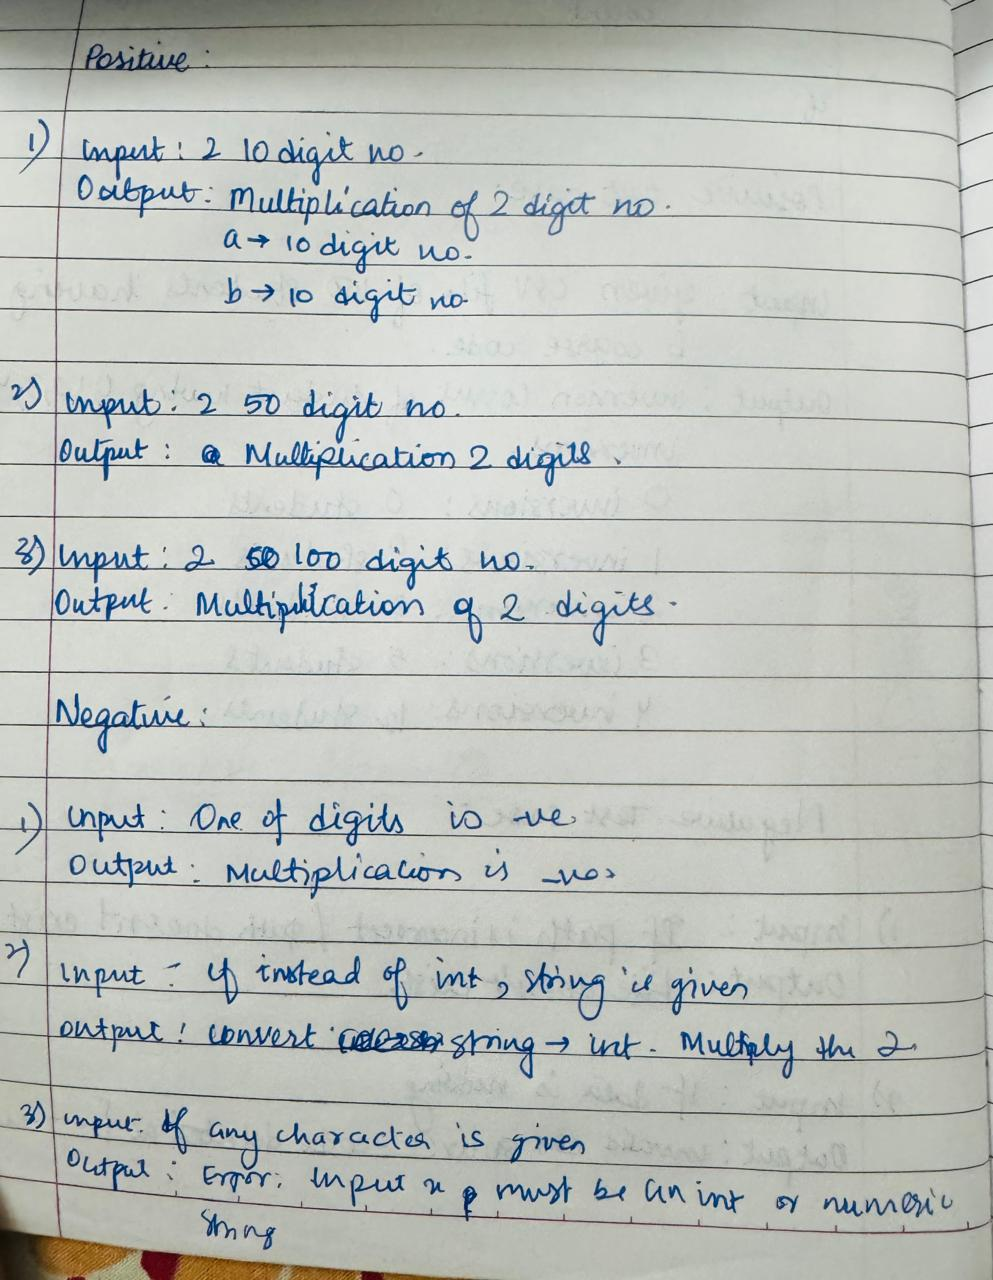 Positive :
1) Input : 2 10 digit no.
Output : Multiplication of 2 digit no.
a → 10 digit no.
b → 10 digit no.
2) Input : 2 50 digit no.
Output : Multiplication 2 digits.
3) Input : 2 100 digit no.
Output : Multiplication of 2 digits.
Negative :
1) Input : One of digits is -ve.
Output : Multiplication is -ve.
2) Input - if instead of int, string is given
Output : convert string → int. Multiply the 2
3) Input : If any character is given
Output : Error: Input x must be an int or numeric
string